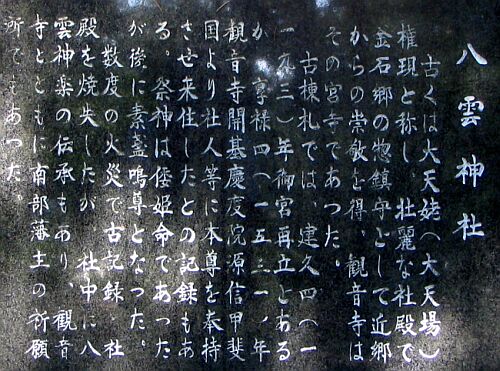 八雲神社
古くは大天姥(大天場)
権現と称し、壮麗な社殿で
釜石郷の惣鎮守として近郷
からの崇敬を得、観音寺は
その宮寺であった。
古棟札では、建久四(一
一九三)年御宮再立とある
が、享禄四(一五三一)年
観音寺開基慶度院源信甲斐
国より社人等に本尊を奉持
させ来住したとの記録もあ
る。祭神は倭姫命であった
が後に素盞鳴尊となった。
数度の火災で古記録、社
殿を焼失したが、社中に八
雲神楽の伝承もあり、観音
寺とともに南部藩主の祈願
所でもあった。